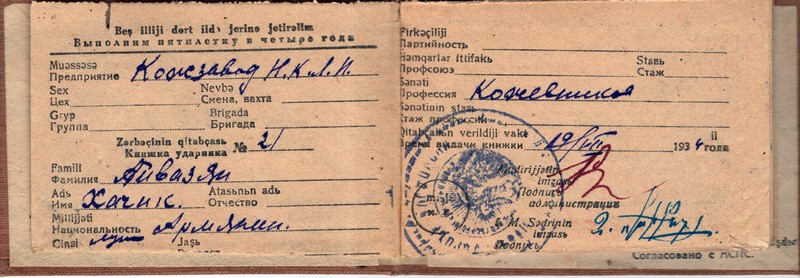 Beş illiji dɵrt ildə jerinə jetirəlim
Выполним пятилетку в четыре года
Muəssəsə
Предприятие Кожзавод Н.К.Л.П.
Sex Nevbə
Цех Смена, вахта
Gryp Brigada
Группа Бригада
Zərbəçinin qitabçası
Книжка ударника № 21
Famili
Фамилия Айвазян
Adь Atasьnьn adь
Имя Хачик. Отчество
Millijjəti
Национальность Армянин.
Cinsi муж Jaşь
Firkəçiliji
Партийность
Həmqarlar ittifakь Staƶь
Профсоюз Стаж
Sənəti
Профессия Кожевников
Sənətinin staƶь
Стаж профессии
Qitabçanьn verildiji vakt il
Время выдачи книжки 19/VII 1934 года
imzasь
Подпись
администрации
F. M. Sədrinin
imzasь
Подпись
Согласовано с НСПС.